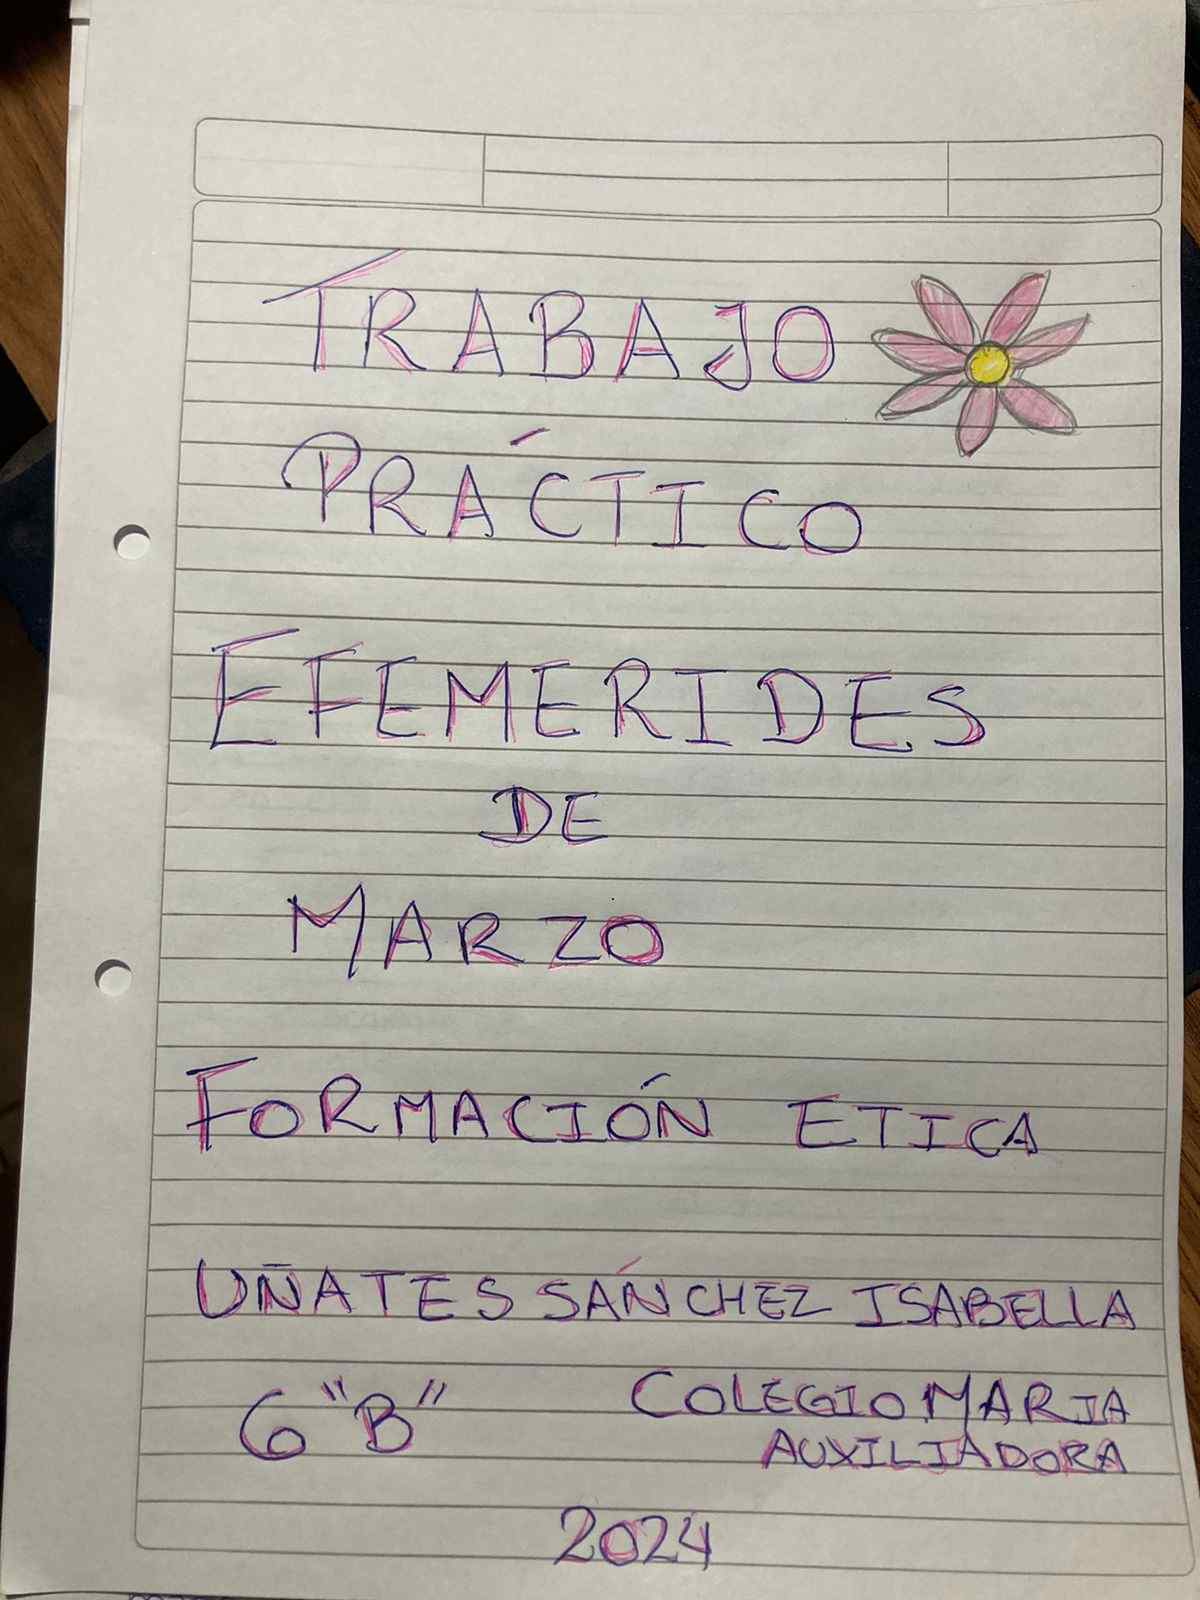 TRABAJO
PRÁCTICO
EFEMERIDES
DE
MARZO
FORMACIÓN ETICA
UÑATES SÁNCHEZ ISABELLA
6 "B"
COLEGIO MARIA
AUXILIADORA
2024